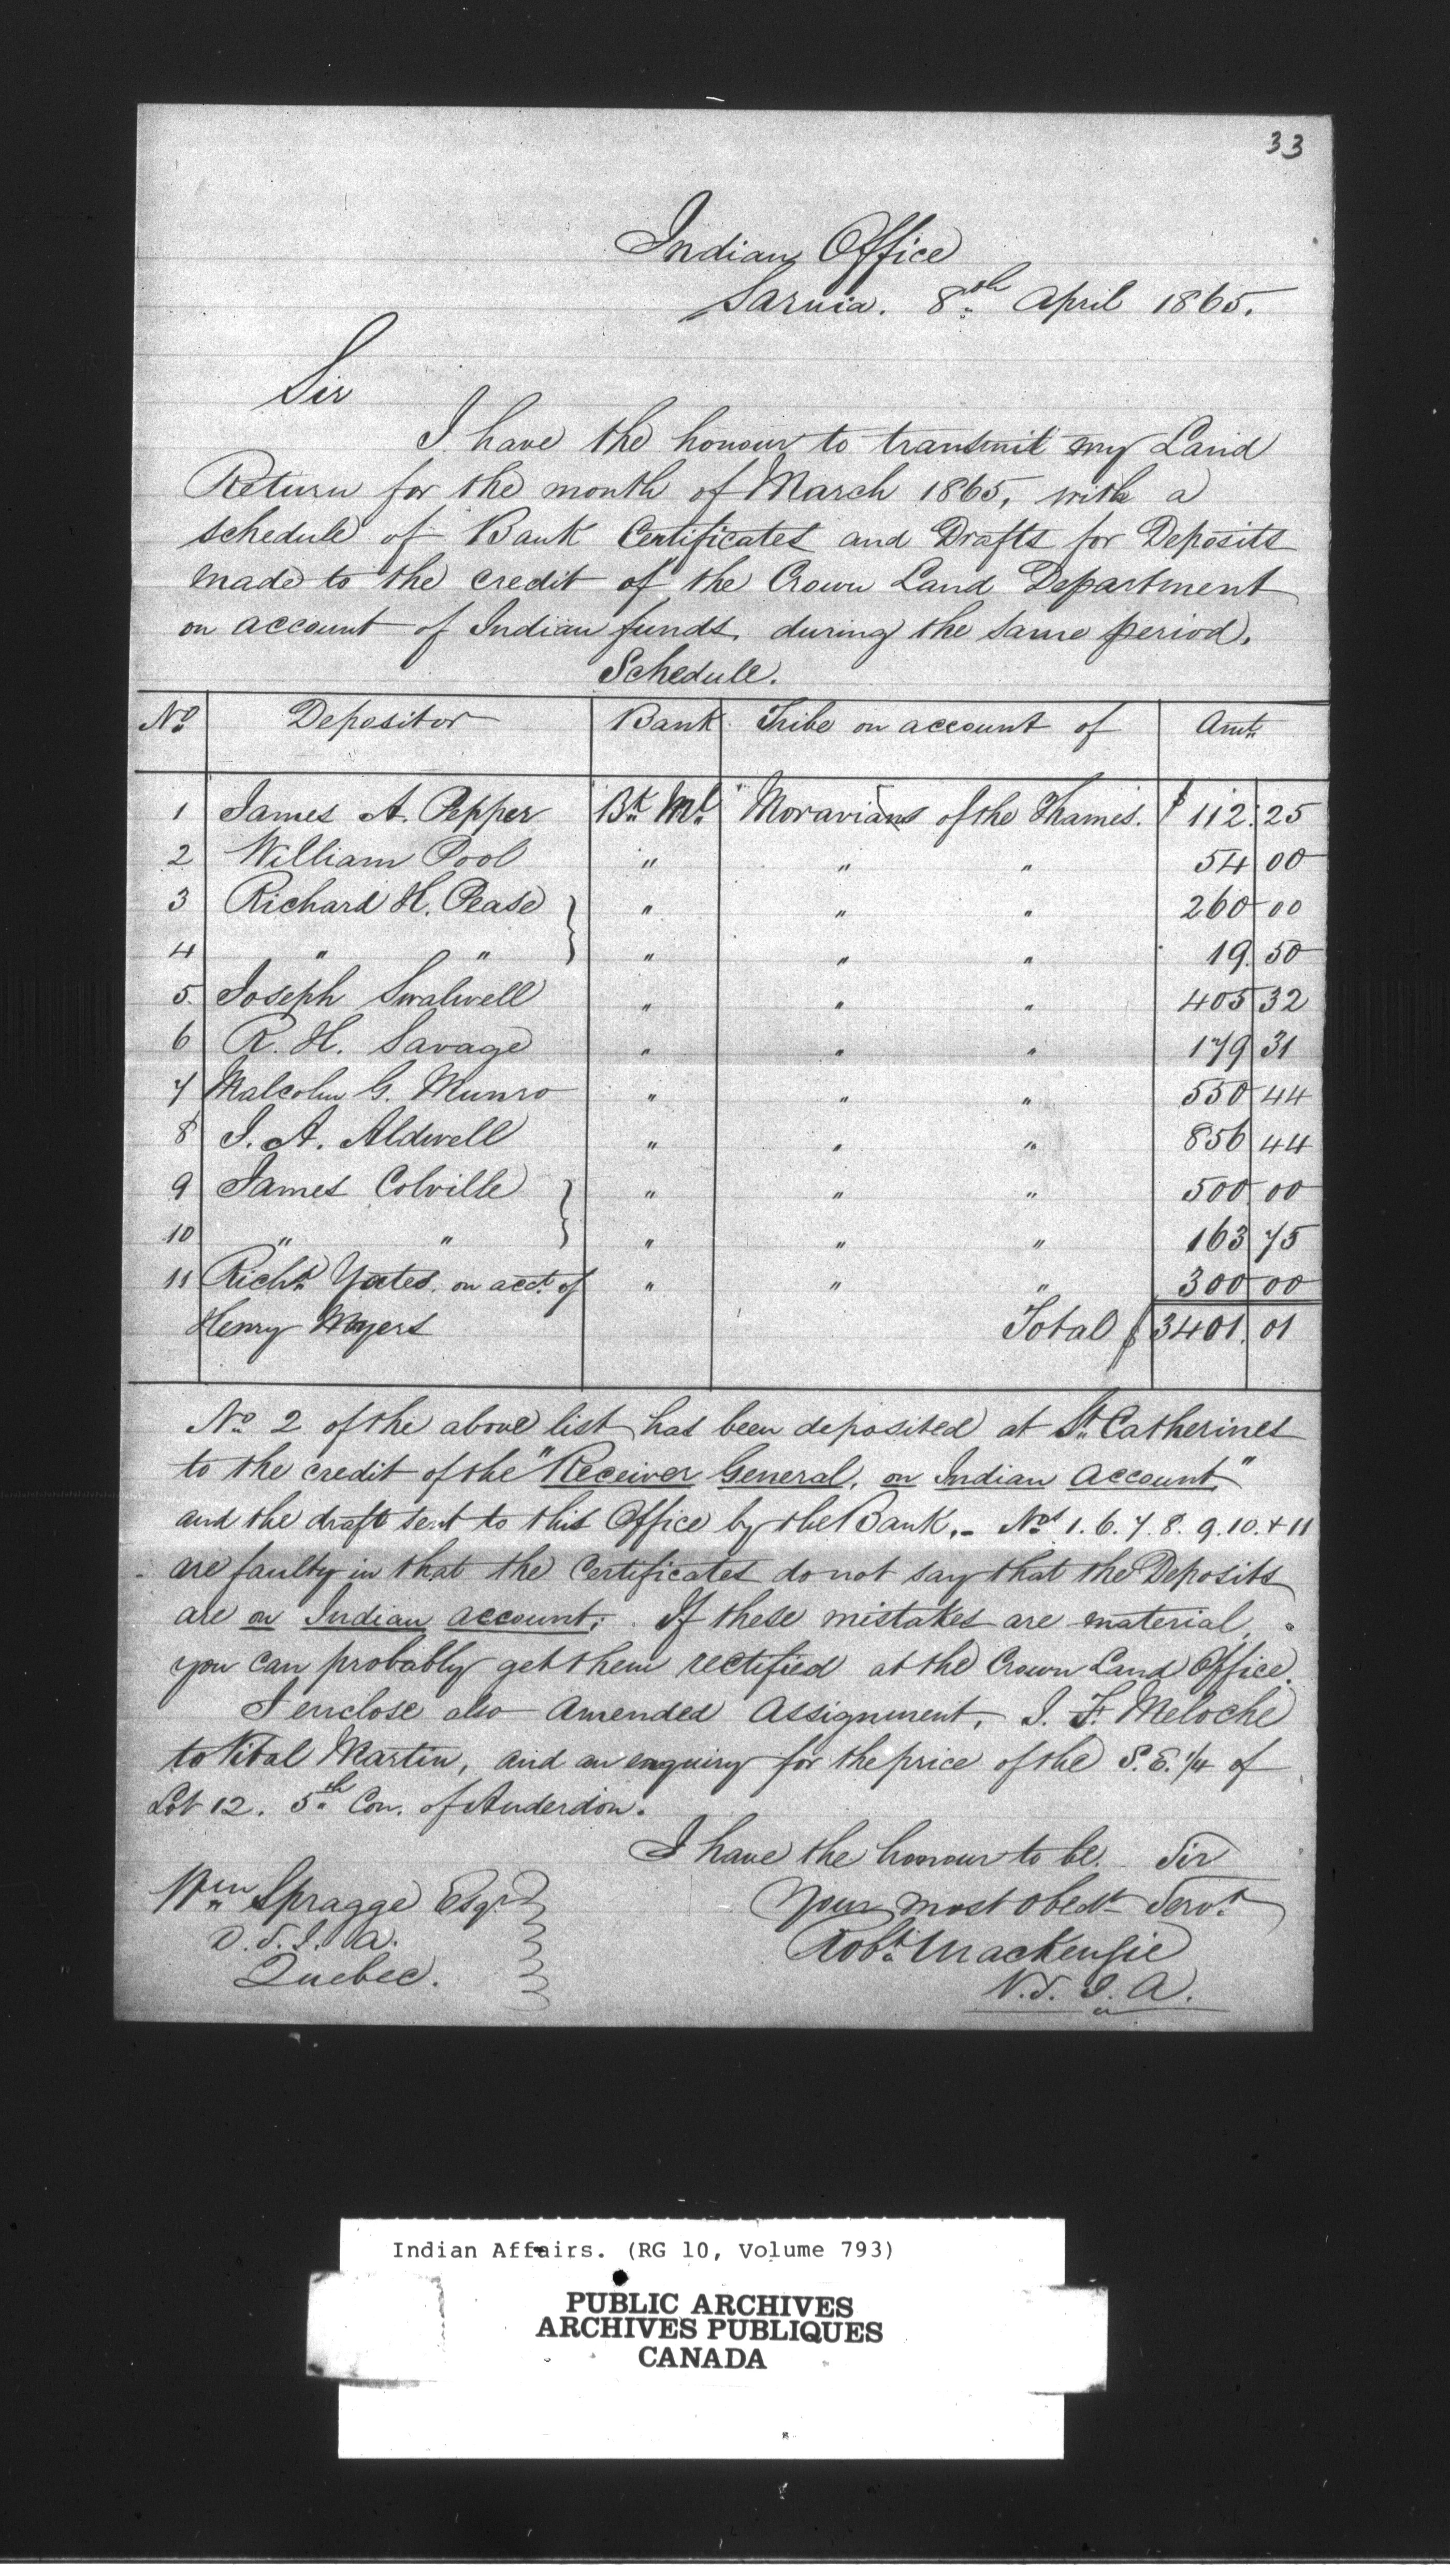 33
Indian Office
Sarnia. 8th April 1865.
Sir
I have the honour to transmit my Land
Return for the month of March 1865, with a
schedule of Bank Certificates and Drafts for Deposits
made to the credit of the Crown Land Department
on account of Indian funds, during the same period.
Schedule.
No. Depositor Bank Tribe on account of Amt.
1 James A. Pepper Bk. Ml. Moravians of the Thames. $ 112.25
2 William Pool " " " 54 00
3 Richard H. Pease } " " " 260 00
4 " " } " " " 19.50
5. Joseph Swalwell " " " 405 32
6 R. H. Savage " " " 179 31
7 Malcolm G. Munro " " " 550 44
8 J. A. Aldwell " " " 856 44
9 James Colville } " " " 500 00
10 " " } " " " 163 75
11 Richd. Yates. on acct. of " " " 300 00
Henry Myers Total $ 3401. 01
No. 2 of the above list has been deposited at St. Catherines
to the credit of the "Receiver General, on Indian Account,"
and the draft sent to this Office by the Bank. - Nos. 1. 6. 7. 8. 9. 10. + 11
are faulty in that the Certificates do not say that the Deposits
are on Indian account. If these mistakes are material,
you can probably get them rectified at the Crown Land Office.
I enclose also Amended Assignment, J. F. Meloche
to Vital Martin, and an enquiry for the price of the S. E. 1/4 of
Lot 12. 5th Con. of Anderdon.
I have the honour to be. Sir
Your most obedt Servt.
Robt. Mackenzie
V.S. I. A.
Wm Spragge Esqr
D. S. I. A.
Quebec.
Indian Affairs. (RG 10, Volume 793)
PUBLIC ARCHIVES
ARCHIVES PUBLIQUES
CANADA